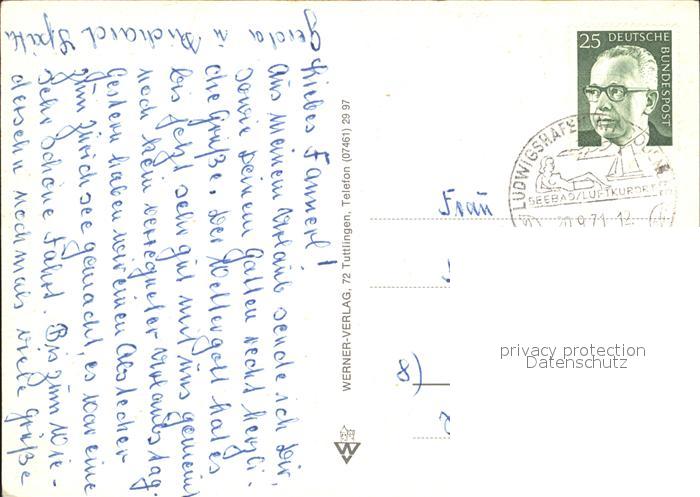 Liebes Fannerl!
Aus meinem Urlaub sende ich Dir,
sowie Deinem Gatten recht herzli-
che Grüße. Der Wettergott hat es
bis jetzt sehr gut mit uns gemeint
noch kein verregneter Urlaubstag.
Gestern haben wir einen Abstecher
zum Zürichsee gemacht, es war eine
sehr schöne Fahrt. Bis zum Wie-
dersehn nochmals viele Grüße
Gerda u. Richard
WERNER-VERLAG, 72 Tuttlingen, Telefon (07461) 29 97
25 DEUTSCHE
BUNDESPOST
LUDWIGSHAFEN
SEEBAD/LUFTKURORT
20.9.71.
Frau
8)
privacy protection
Datenschutz